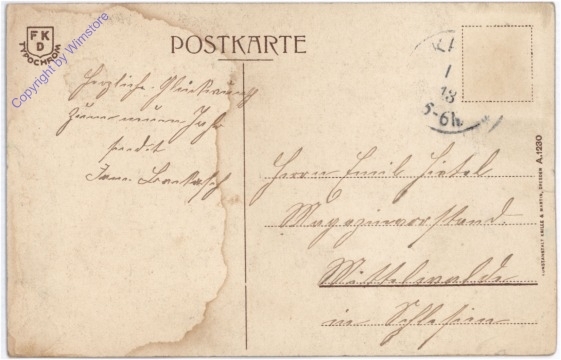 FKD
TYPOCHROM
Copyright by Wimstore
POSTKARTE
1
13
5-6N
Herzliche Glückwünsch
zum neuen Jahr
sendet
Herrn Emil Hertel
Magazinvorstand.
Mittelwalde
in Schlesien
KUNSTANSTALT KRILLE & MARTIN, DRESDEN A.1230